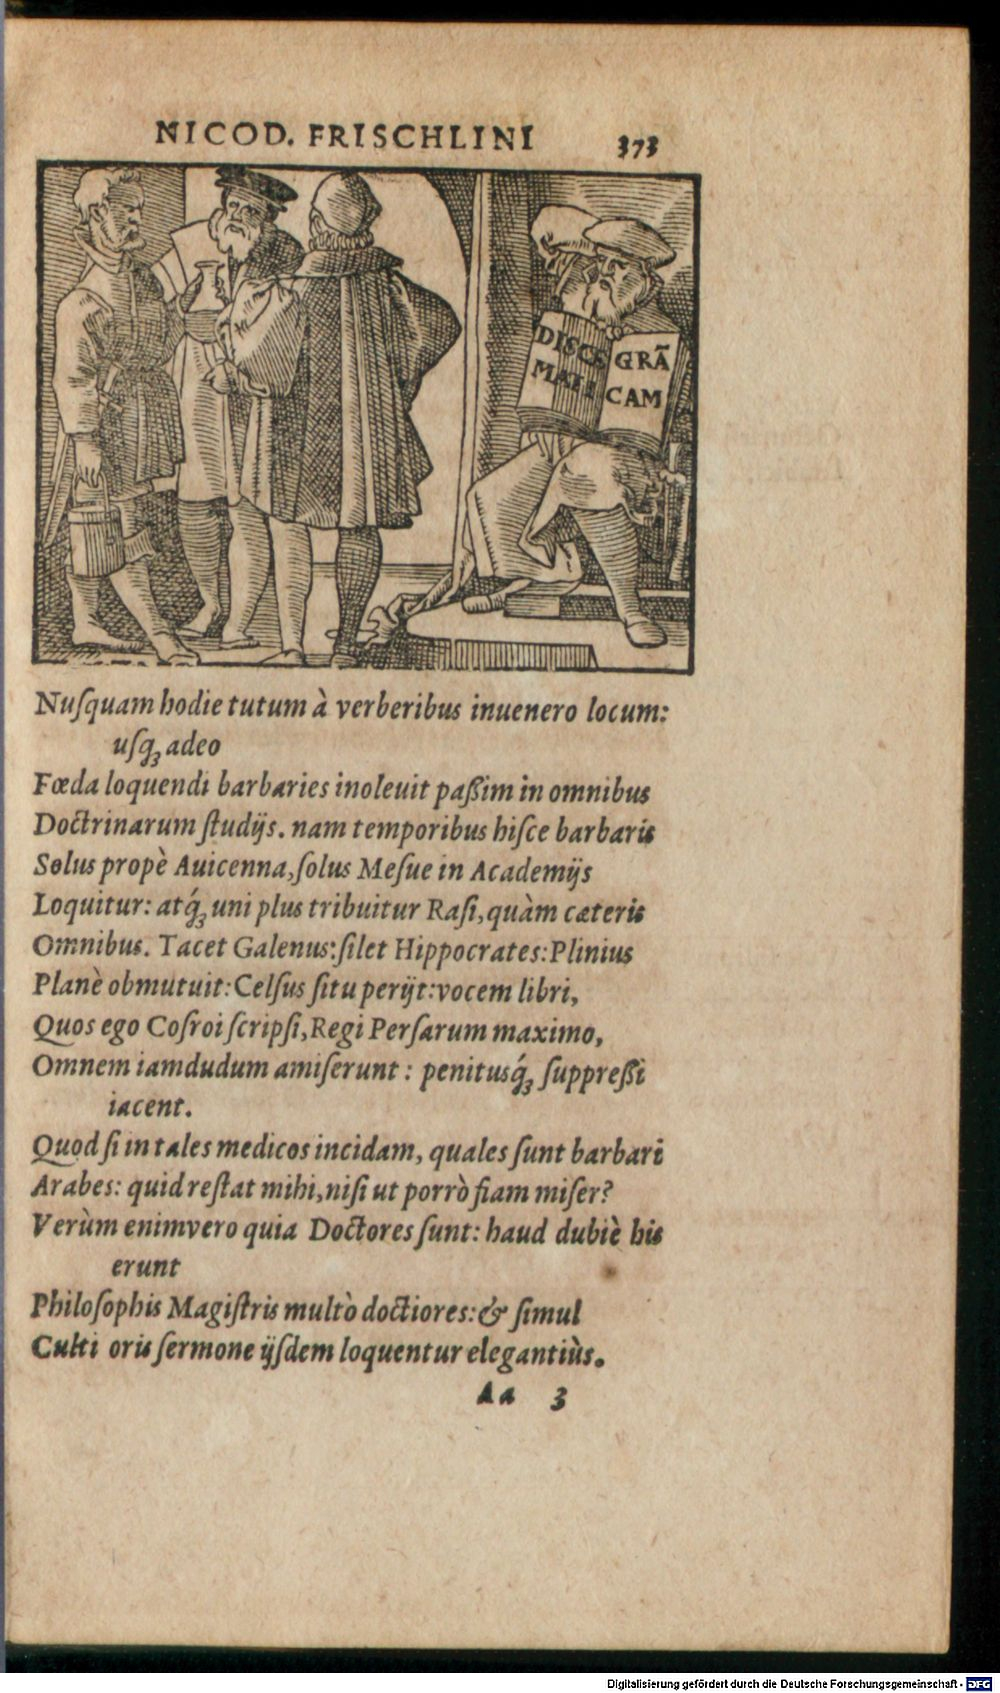 NICOD. FRISCHLINI 373
DISCE GRĀ
MATI CAM
Nuſquam hodie tutum à verberibus inuenero locum:
uſq́ꝫ adeo
Fœda loquendi barbaries inoleuit paßim in omnibus
Doctrinarum ſtudijs. nam temporibus hiſce barbaris
Solus propè Auicenna, ſolus Meſue in Academijs
Loquitur: atq́ꝫ uni plus tribuitur Raſi, quàm cæteris
Omnibus. Tacet Galenus: ſilet Hippocrates: Plinius
Planè obmutuit: Celſus ſitu perijt: vocem libri,
Quos ego Coſroi ſcripſi, Regi Perſarum maximo,
Omnem iamdudum amiſerunt: penitusq́ꝫ ſuppreßi
iacent.
Quod ſi in tales medicos incidam, quales ſunt barbari
Arabes: quid reſtat mihi, niſi ut porrò fiam miſer?
Verùm enimvero quia Doctores ſunt: haud dubiè his
erunt
Philoſophis Magiſtris multò doctiores: & ſimul
Culti oris ſermone ijſdem loquentur elegantiùs.
Aa 3
Digitalisierung gefördert durch die Deutsche Forschungsgemeinschaft - DFG